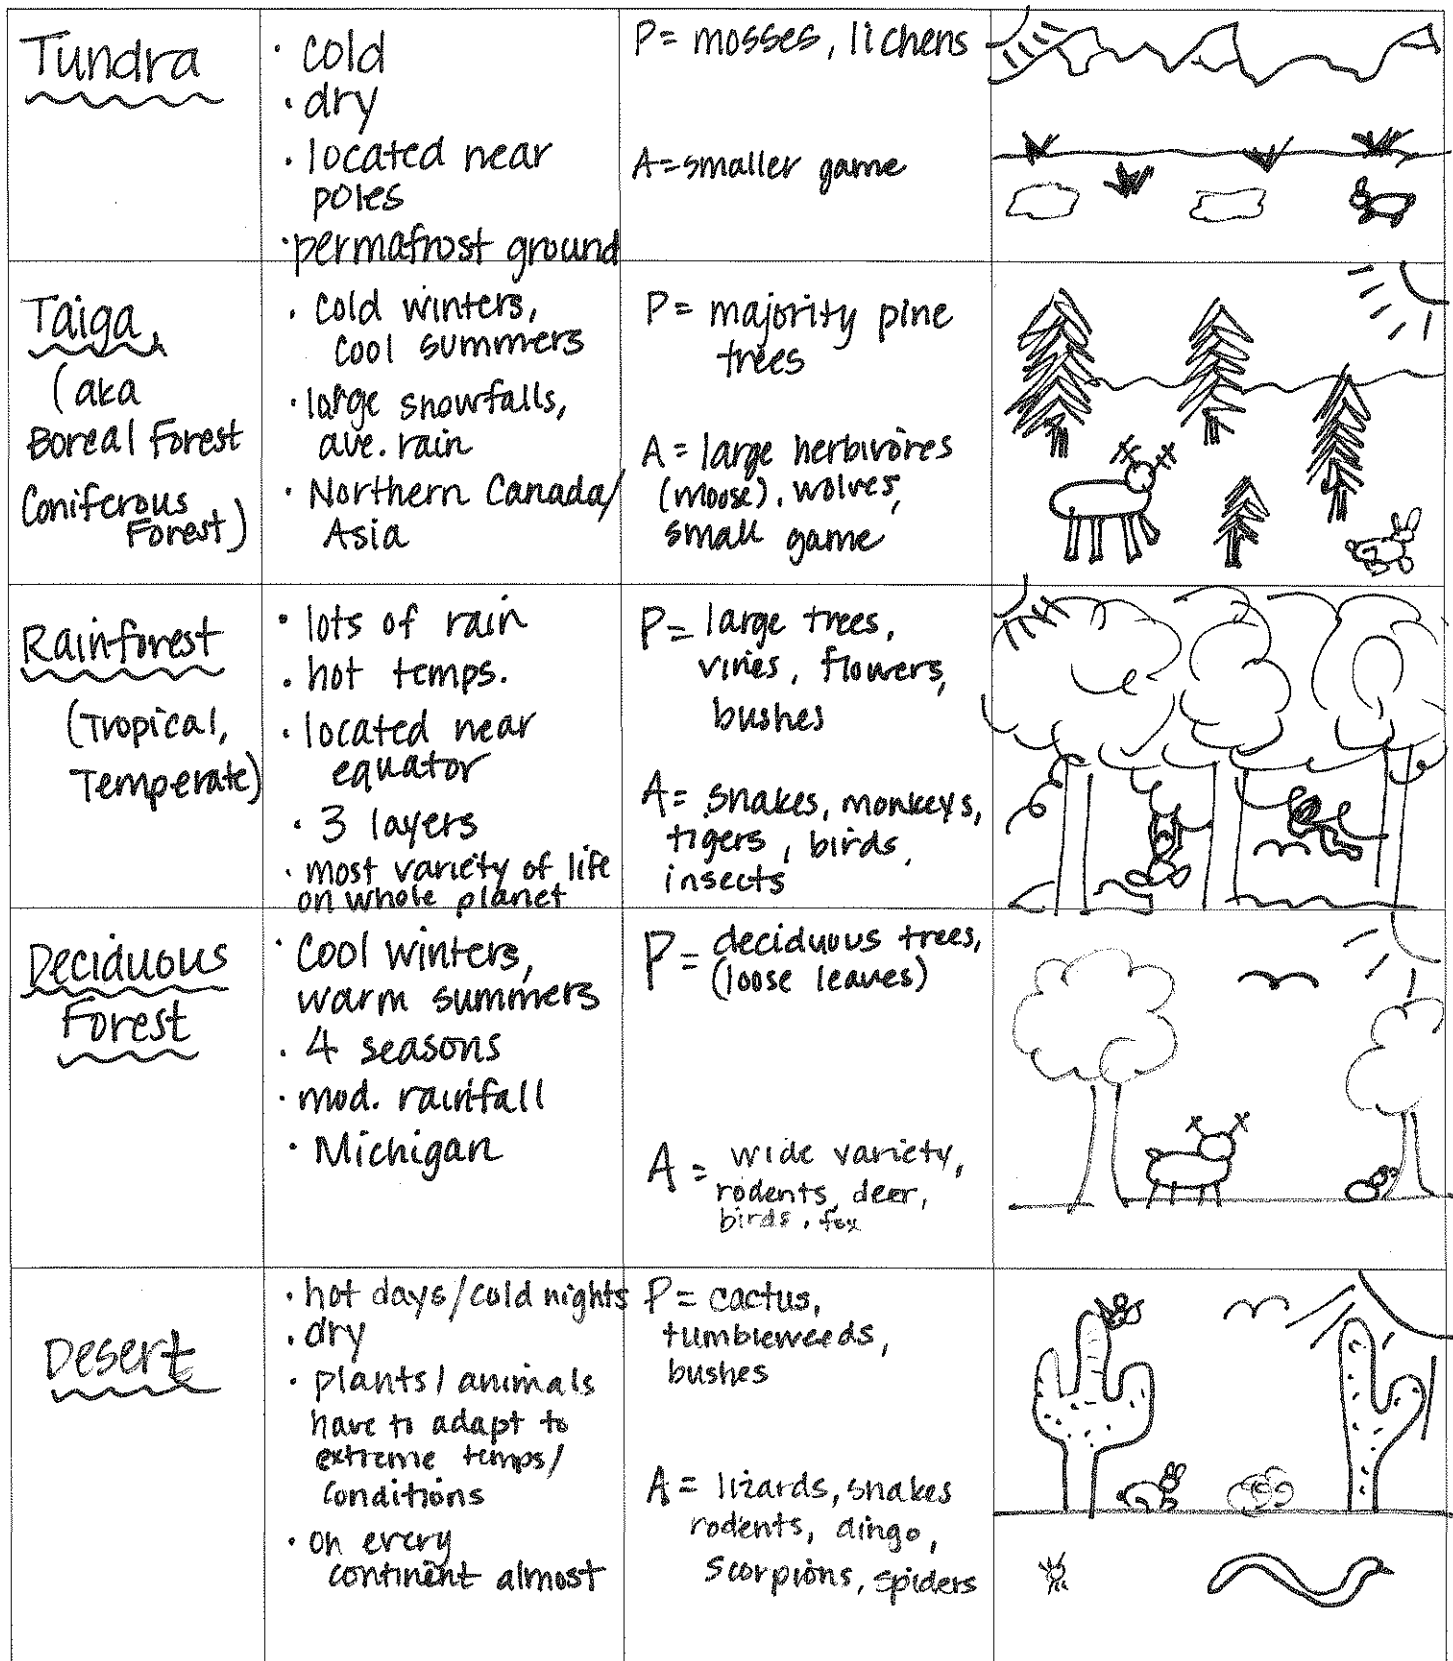 Tundra
· cold
· dry
· located near
poles
· permafrost ground
P= mosses, lichens
A= smaller game
Taiga
(aka
Boreal Forest
Coniferous
Forest)
· cold winters,
cool summers
· large snowfalls,
ave. rain
· Northern Canada/
Asia
P= majority pine
trees
A= large herbivores
(moose), wolves,
small game
Rainforest
(Tropical,
Temperate)
· lots of rain
· hot temps.
· located near
equator
· 3 layers
· most variety of life
on whole planet
P= large trees,
vines, flowers,
bushes
A= snakes, monkeys,
tigers, birds,
insects
Deciduous
Forest
· Cool winters,
warm summers
· 4 seasons
· mod. rainfall
· Michigan
P= deciduous trees,
(loose leaves)
A= wide variety,
rodents, deer,
birds, fox
Desert
· hot days/cold nights
· dry
· plants/animals
have to adapt to
extreme temps/
conditions
· on every
continent almost
P= cactus,
tumbleweeds,
bushes
A= lizards, snakes
rodents, dingo,
scorpions, spiders